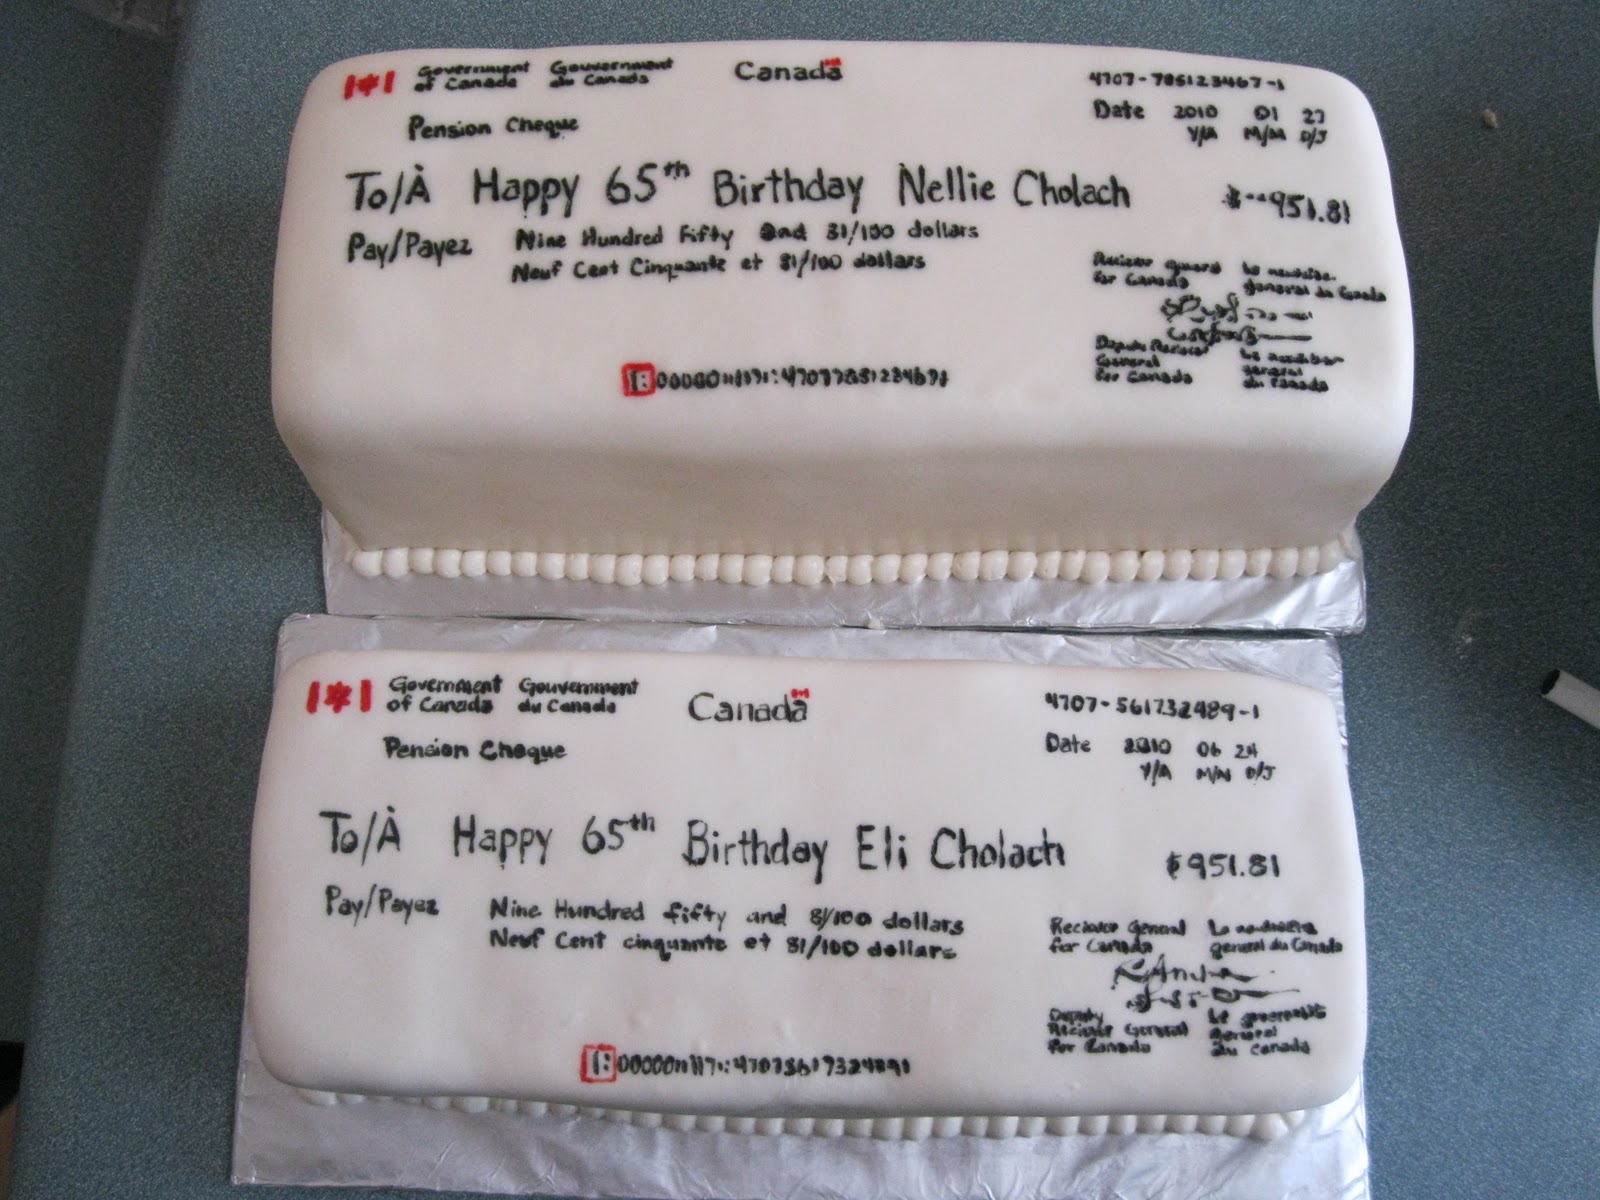 Government Gouvernement Canada 4707-785123467-1
of Canada du Canada
Date 2010 01 27
Pension Cheque Y/A M/M D/J
To/À Happy 65th Birthday Nellie Cholach $--951.81
Pay/Payez Nine Hundred Fifty and 81/100 dollars
Neuf Cent Cinquante et 81/100 dollars
for Canada general du Canada
General general
for Canada du Canada
Government Gouvernement Canada 4707-561732489-1
of Canada du Canada
Pension Cheque Date 2010 06 24
Y/A M/M D/J
To/À Happy 65th Birthday Eli Cholach $951.81
Pay/Payez Nine Hundred fifty and 81/100 dollars
Neuf Cent cinquante et 81/100 dollars
General
for Canada general du Canada
Deputy
General general
for Canada du Canada